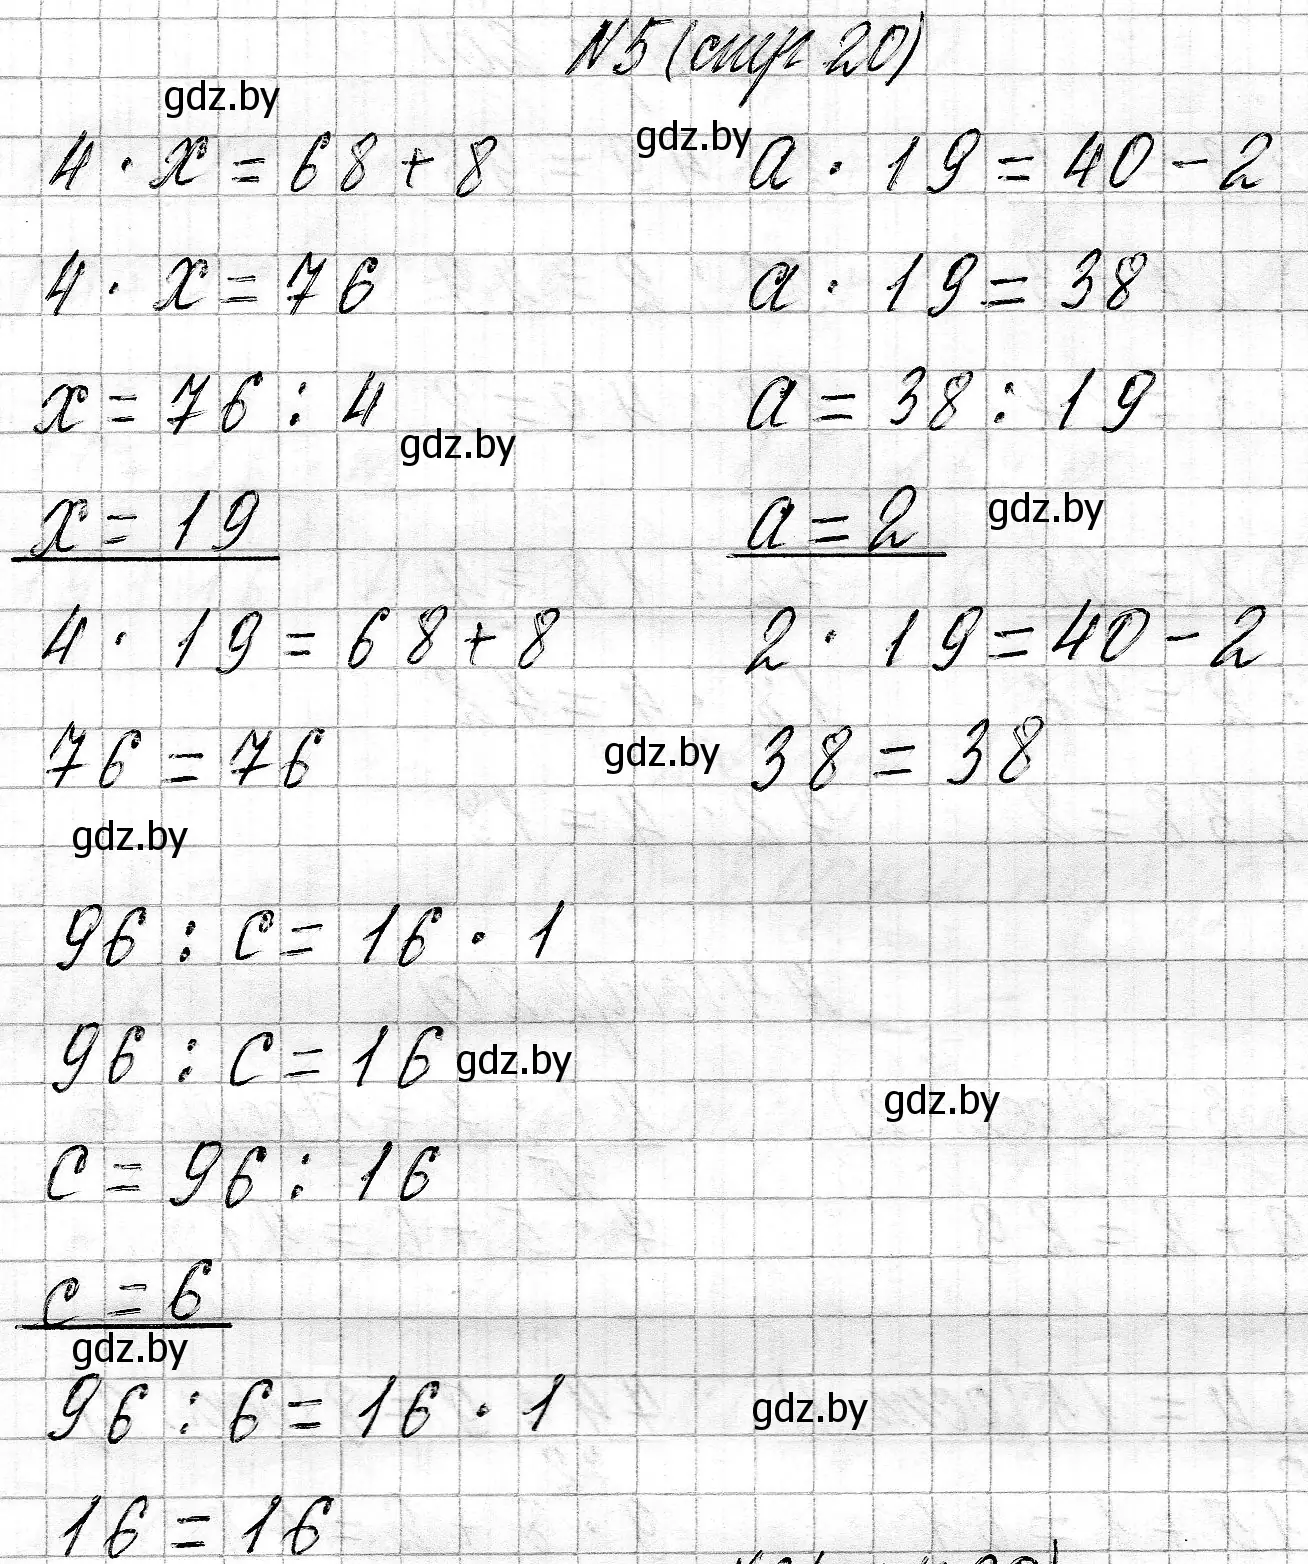 N5 (стр 20)
gdz.by
gdz.by
4 · x = 68 + 8
4 · x = 76
x = 76 : 4
gdz.by
x = 19
4 · 19 = 68 + 8
76 = 76
gdz.by
a · 19 = 40 - 2
a · 19 = 38
a = 38 : 19
a = 2
gdz.by
2 · 19 = 40 - 2
gdz.by
38 = 38
96 : c = 16 · 1
96 : c = 16
gdz.by
gdz.by
c = 96 : 16
c = 6
gdz.by
96 : 6 = 16 · 1
gdz.by
16 = 16